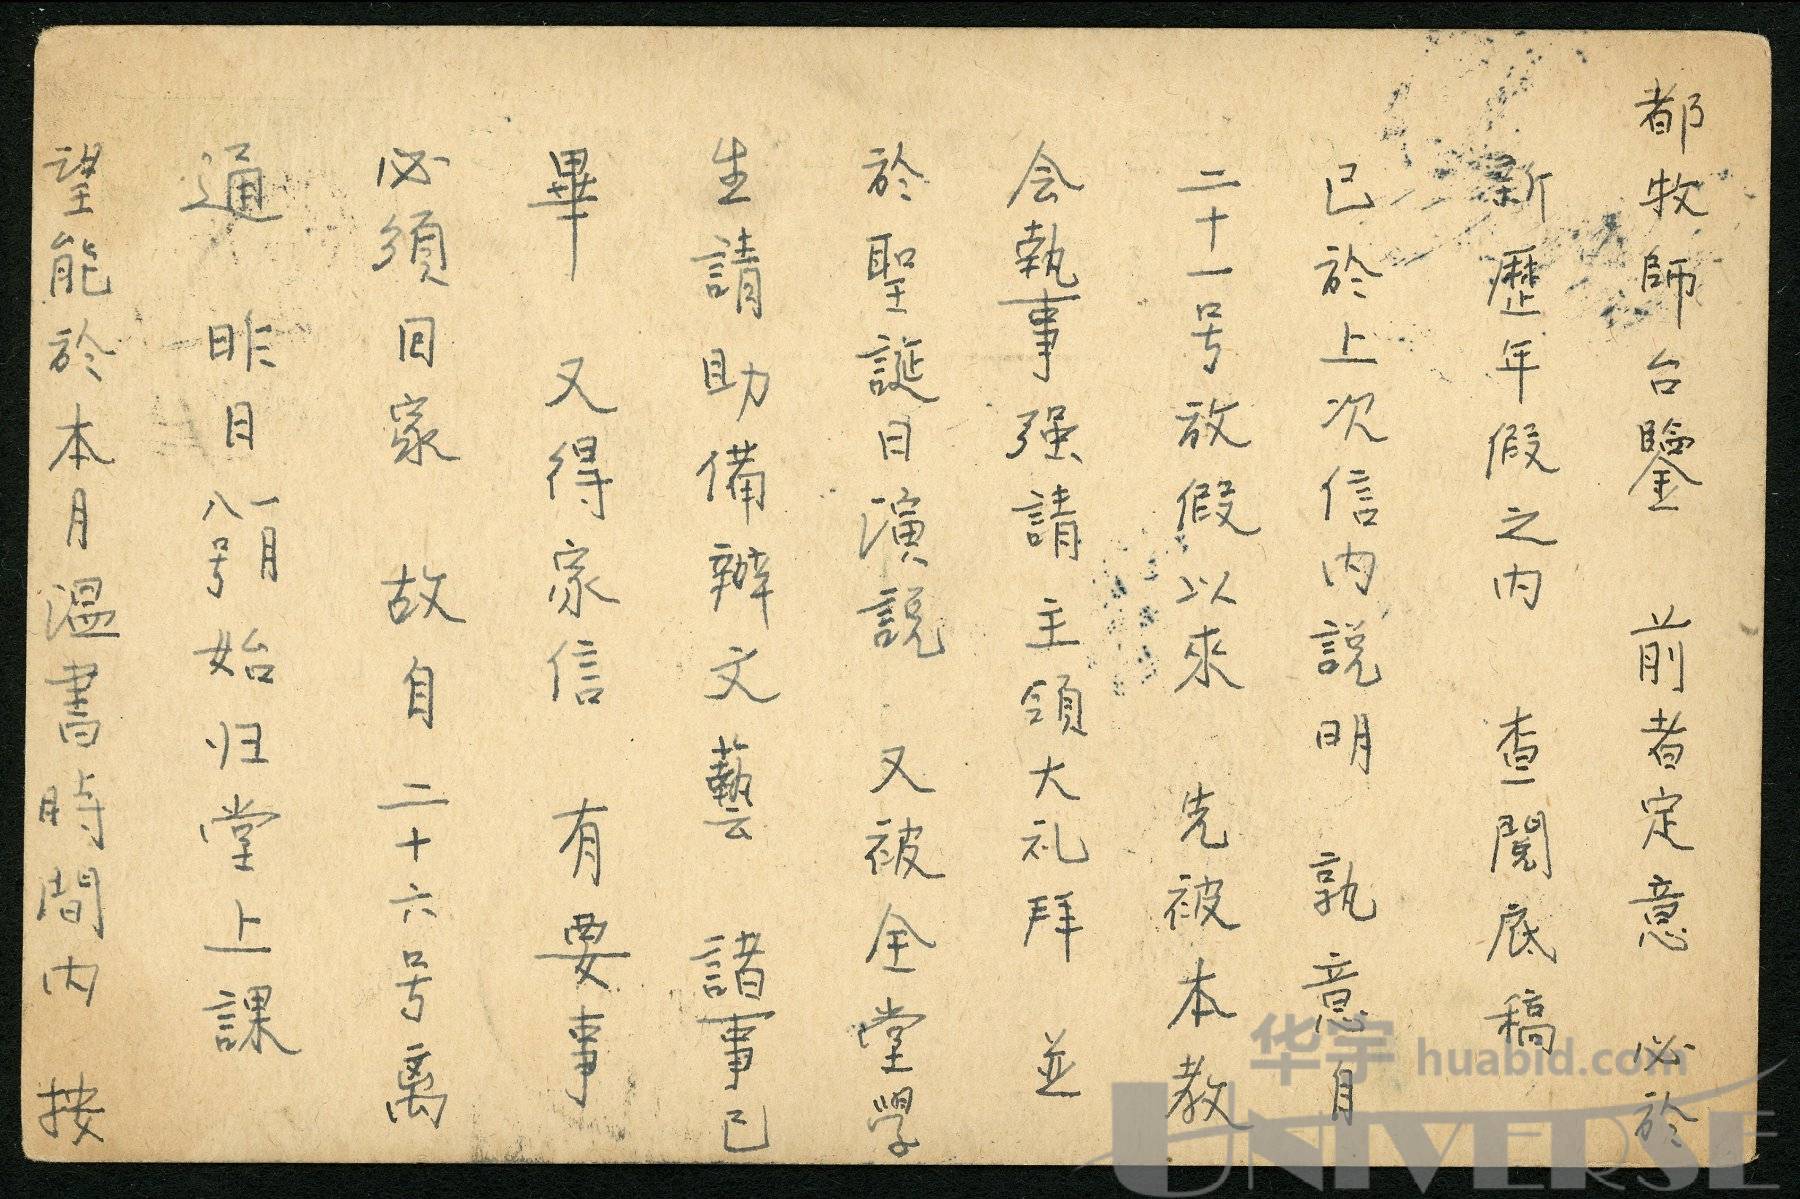 都牧師台鑒 前者定意 必於
新歷年假之内 查閱底稿
已於上次信内説明 孰意自
二十一号放假以來 先被本教
会執事强請主領大礼拜 並
於聖誕日演説 又被全堂學
生請助備辦文藝 諸事已
畢 又得家信 有要事
必須回家 故自二十六号离
通 昨日一月八号始归堂上課
望能於本月温書時間内 按
华宇 huabid.com
UNIVERSE